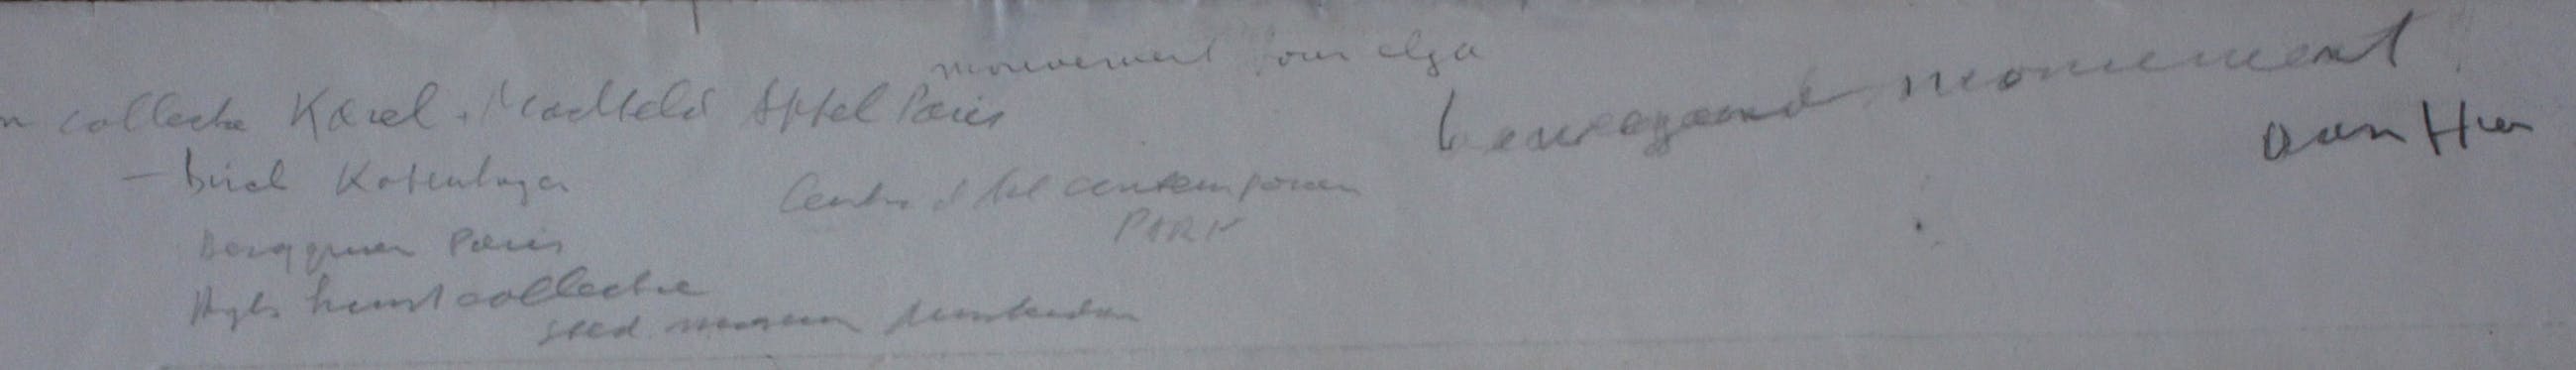 mouvement pour elga
collectie Karel + Machteld Appel Paris
bewegend monument
aan H
– Birch Kopenhagen
Centre d'Art contemporain
PARIS
Berggruen Paris
Rijks kunstcollectie
sted. museum Amsterdam